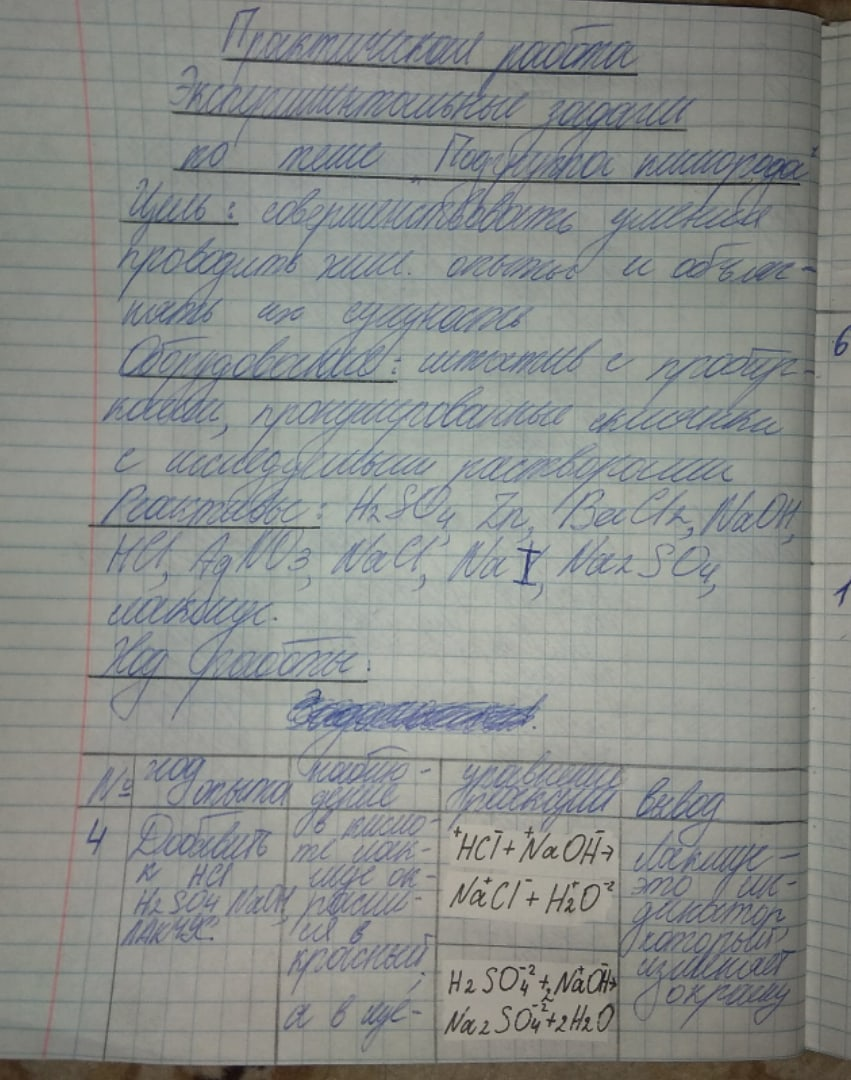 Практическая работа
Экспериментальные задачи
по теме "Подгруппа кислорода"
Цель: совершенствовать умения
проводить хим. опыты и объяс-
нять их сущность
Оборудование: штатив с пробир-
ками, пронумерованные склянки
с исследуемыми растворами
Реактивы: H2SO4, Zn, BaCl2, NaOH,
HCl, AgNO3, NaCl, NaI, Na2SO4,
лакмус.
Ход работы:
№ ход опыта наблю-дение уравнение реакции вывод
4
Добавить
к HCl
H2SO4 NaOH,
лакмус.
в кисло-
те лак-
мус ок-
расил-
ся в
красный,
а в щё-
+HCl- + +NaOH- →
Na+Cl- + H2+O-2
H2SO4-2 + 2Na+OH- →
Na2SO4-2 + 2H2O
Лакмус -
это ин-
дикатор,
который
изменяет
окраску
6
1